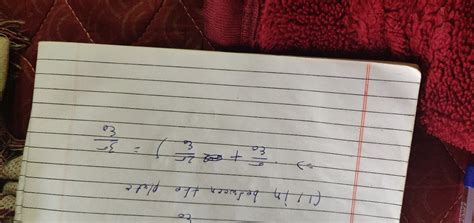 ε₀
(ii) In between the plate
⇒ σ/ε₀ + 2σ/ε₀ ) = 3σ/ε₀